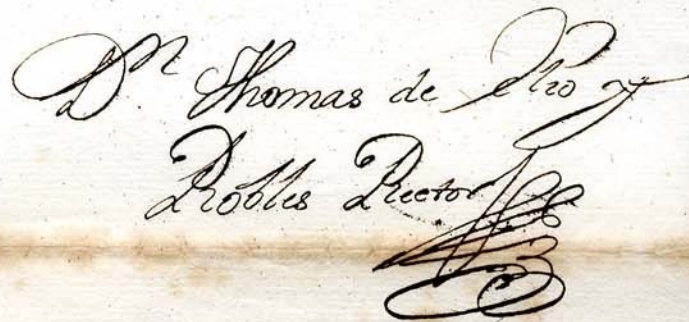 Dn. Thomas de y
Robles Rector